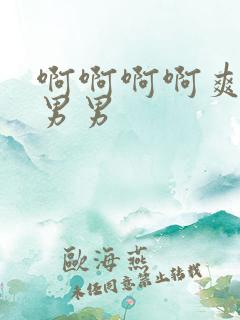 啊啊啊啊爽
男男
歐海燕
未经同意禁止转载